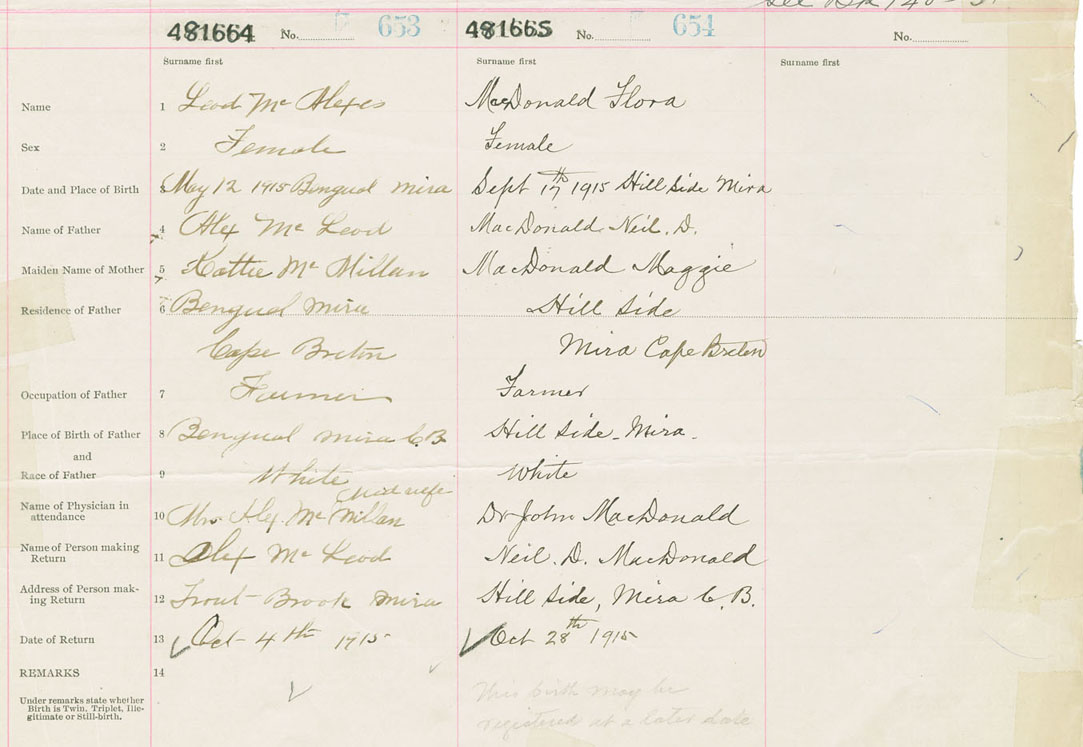 481664 No. 653 481665 No. 654 No.
Surname first Surname first Surname first
Name 1 Leod Mc Alexes MacDonald Flora
Sex 2 Female Female
Date and Place of Birth 3 May 12 1915 Bengual Mira Sept 17th 1915 Hill Side Mira
Name of Father 4 Alex Mc Leod MacDonald Neil. D.
Maiden Name of Mother 5 Kattie Mc Millan MacDonald Maggie
Residence of Father 6 Bengual Mira Hill Side
Cape Breton Mira Cape Breton
Occupation of Father 7 Farmer Farmer
Place of Birth of Father 8 Bengual Mira C.B. Hill Side - Mira.
and
Race of Father 9 White White
midwife
Name of Physician in
attendance 10 Mrs. Alex Mc Millan Dr John MacDonald
Name of Person making
Return 11 Alex Mc Leod Neil. D. MacDonald
Address of Person mak-
ing Return 12 Trout Brook Mira Hill Side, Mira C. B.
Date of Return 13 Oct 4th 1915 Oct 28th 1915
REMARKS 14
Under remarks state whether
Birth is Twin, Triplet, Ille-
gitimate or Still-birth.
This birth may be
registered at a later date